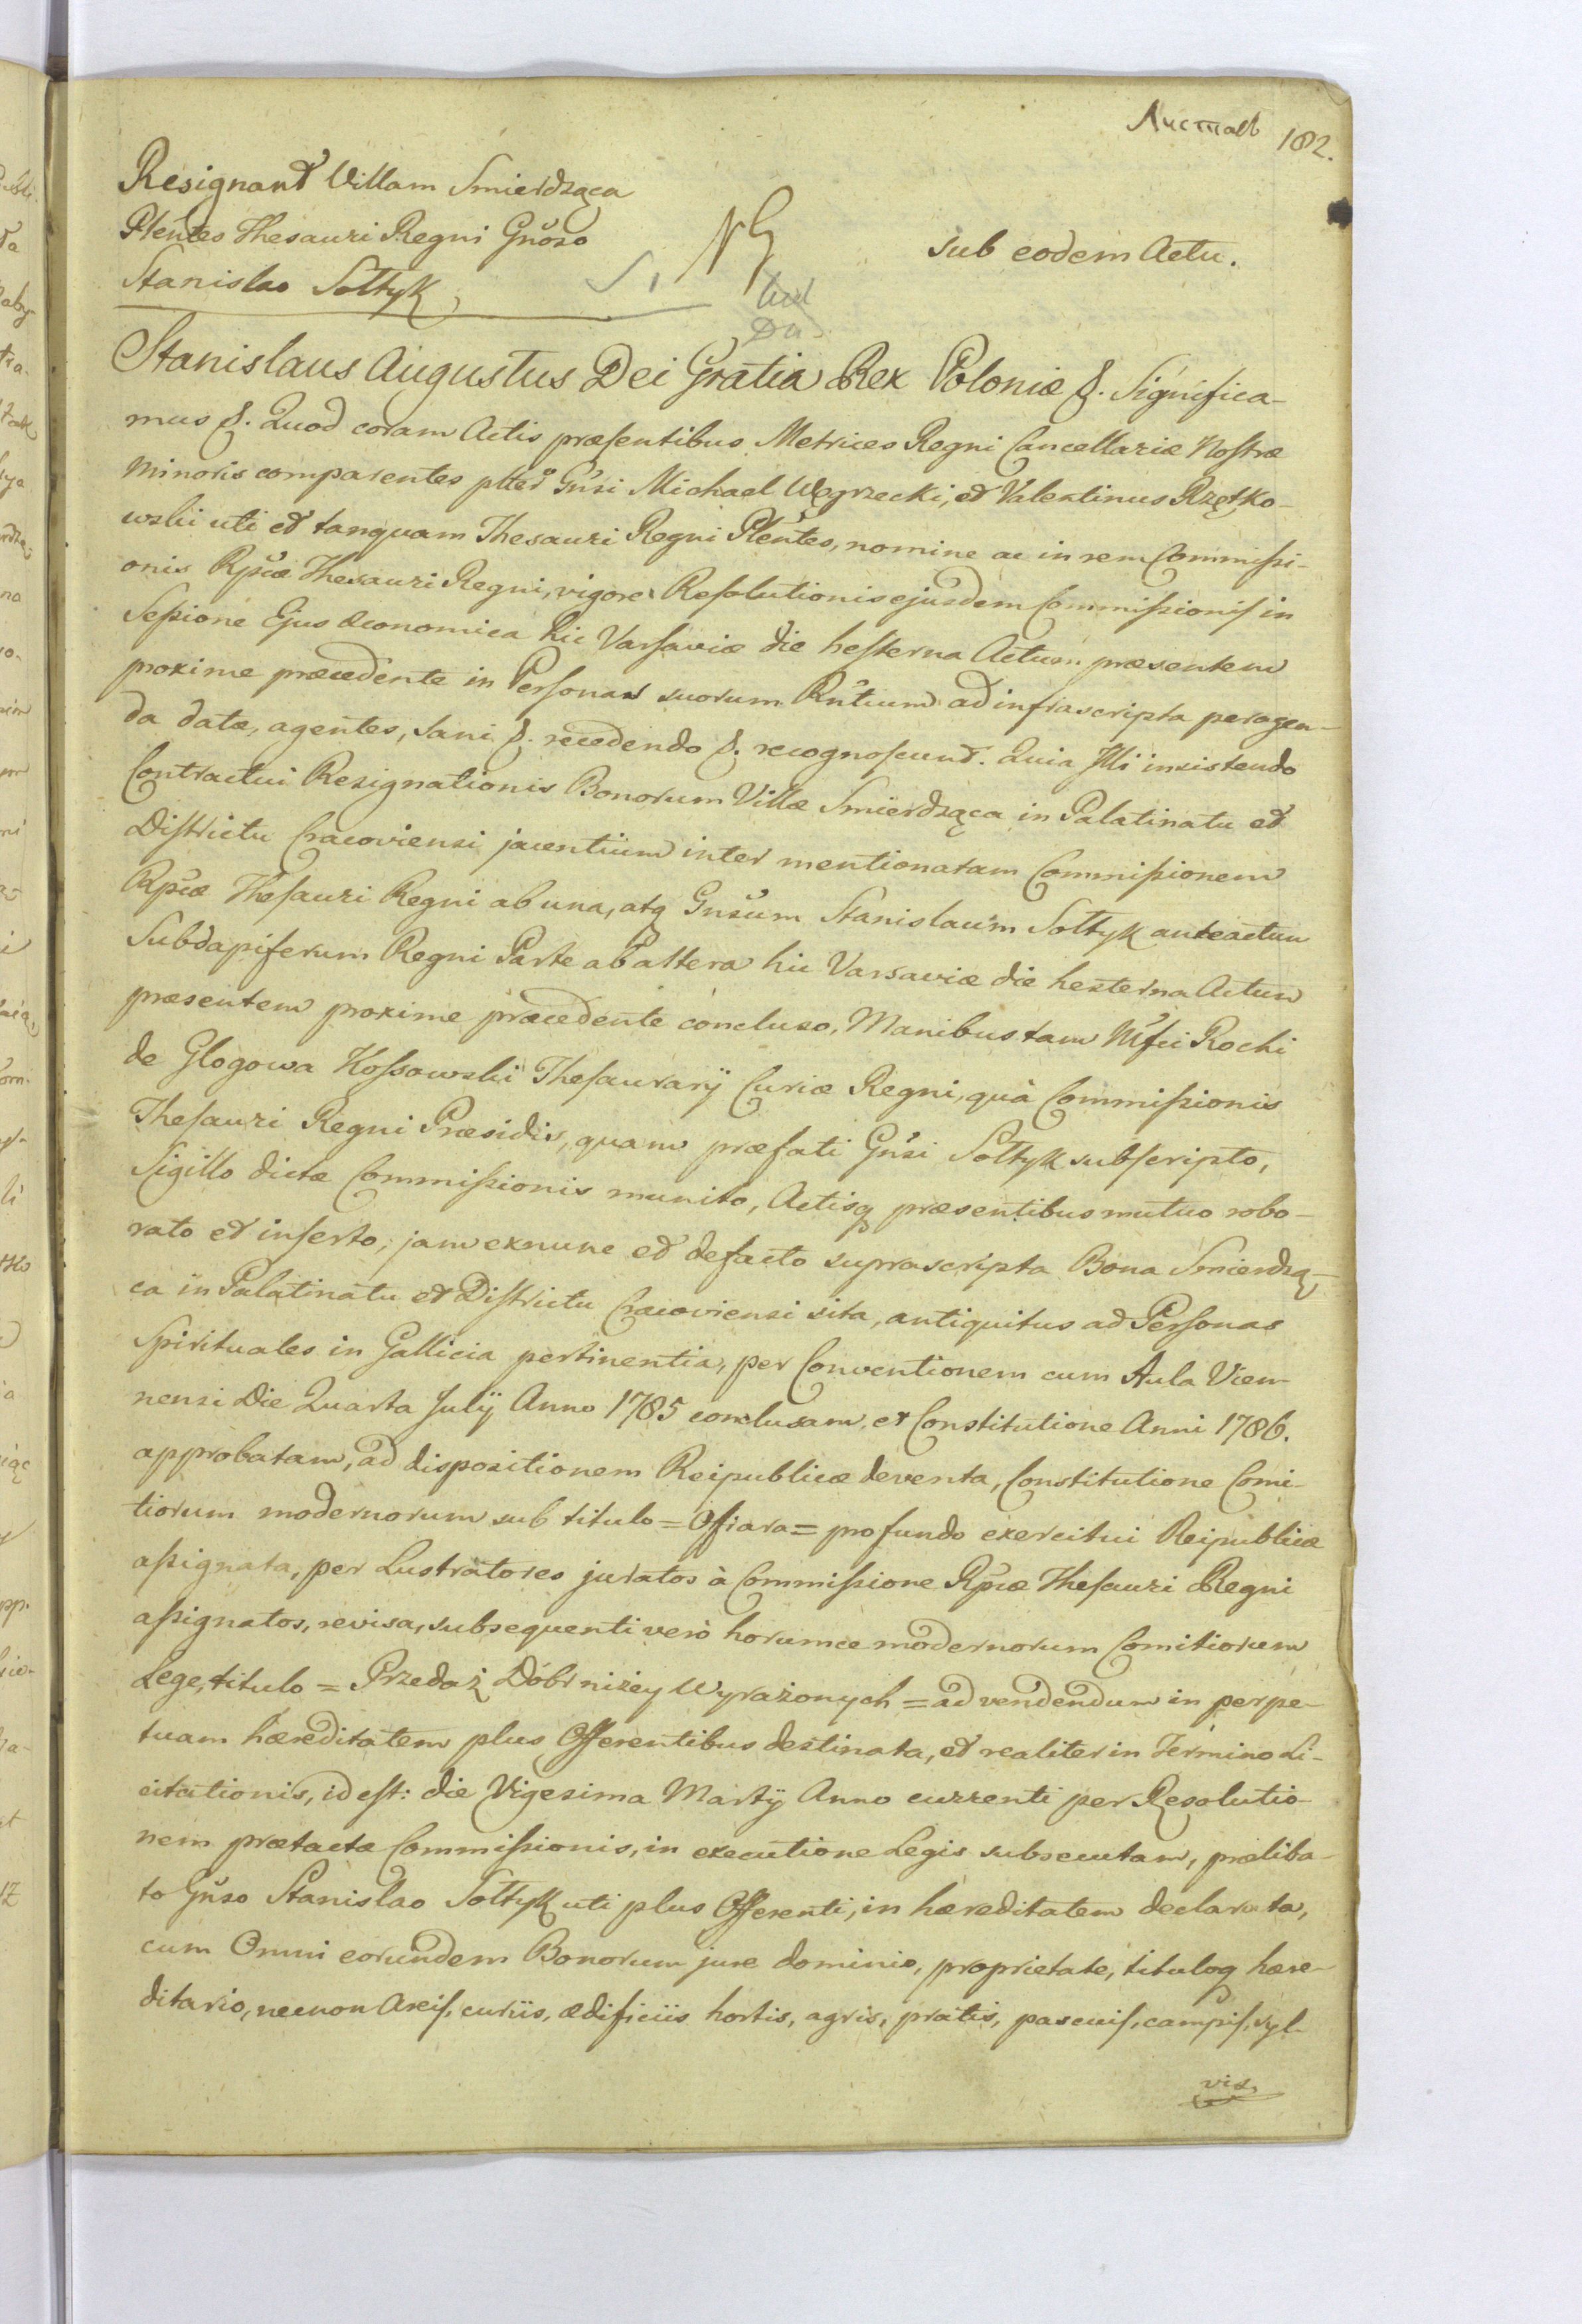 Листовъ 182.
Resignant Villam Smierdząca
Plentes Thesauri Regni Gnoso
Stanislao Sołtyk,
sub eodem Actu.
Stanislaus Augustus Dei Gratia Rex Poloniæ &. Significa-
mus &. Quod coram Actis præsentibus Metrices Regni Cancellariæ Nostræ
Minoris comparentes plter Gnsi Michael Węgrzecki, et Valentinus Rzętko-
wski uti et tanquam Thesauri Regni Plentes, nomine ac in rem Commissi-
onis Rpcæ Thesauri Regni, vigore Resolutionis ejusdem Commissionis in
Sessione Ejus œconomica hic Varsaviæ die hesterna Actum præsentem
proxime præcedente in Personas suorum Rntium ad infrascripta peragen-
da datæ, agentes, sani &. recedendo &. recognoscunt. Quia Illi insistendo
Contractui Resignationis Bonorum Villæ Smierdząca in Palatinatu et
Districtu Cracoviensi jacentium inter mentionatam Commissionem
Rpcæ Thesauri Regni ab una, atq Gnsum Stanislaum Sołtyk anteactum
Subdapiferum Regni Parte ab altera hic Varsaviæ die hesterna Actum
præsentem proxime præcedente concluso, Manibus tam Mfci Rochi
de Glogowa Kossowski Thesaurarÿ Curiæ Regni, quà Commissionis
Thesauri Regni Præsidis, quam præfati Gnsi Sołtyk subscripto,
Sigillo dictæ Commissionis munito, Actisq præsentibus mutuo robo-
rato et inserto, jam exnunc et defacto suprascripta Bona Smierdzą-
ca in Palatinatu et Districtu Cracoviensi sita, antiquitus ad Personas
Spirituales in Gallicia pertinentia, per Conventionem cum Aula Vien-
nensi Die Quarta Julÿ Anno 1785 conclusam, et Constitutione Anni 1786.
approbatam, ad dispositionem Reipublicæ deventa, Constitutione Comi-
tiorum modernorum sub titulo = Ofiara = pro fundo exercitui Reipublicæ
assignata, per Lustratores juratos à Commissione Rpcæ Thesauri Regni
assignatos, revisa, subsequenti verò horumce modernorum Comitiorum
Lege, titulo = Przedaż Dóbr niżey Wyrażonych = ad vendendum in perpe-
tuam hæreditatem plus Offerentibus destinata, et realiter in Termino Li-
citationis, id est: die Vigesima Martÿ Anno currenti per Resolutio-
nem prætactæ Commissionis, in executione Legis subsecutam, præliba-
to Gnso Stanislao Sołtyk uti plus Offerenti, in hæreditatem declarata,
cum Omni eorundem Bonorum jure dominio, proprietate, tituloq hære-
ditario, necnon Areis, curiis, ædificiis hortis, agris, pratis, pascuis, campis, syl-
vis,